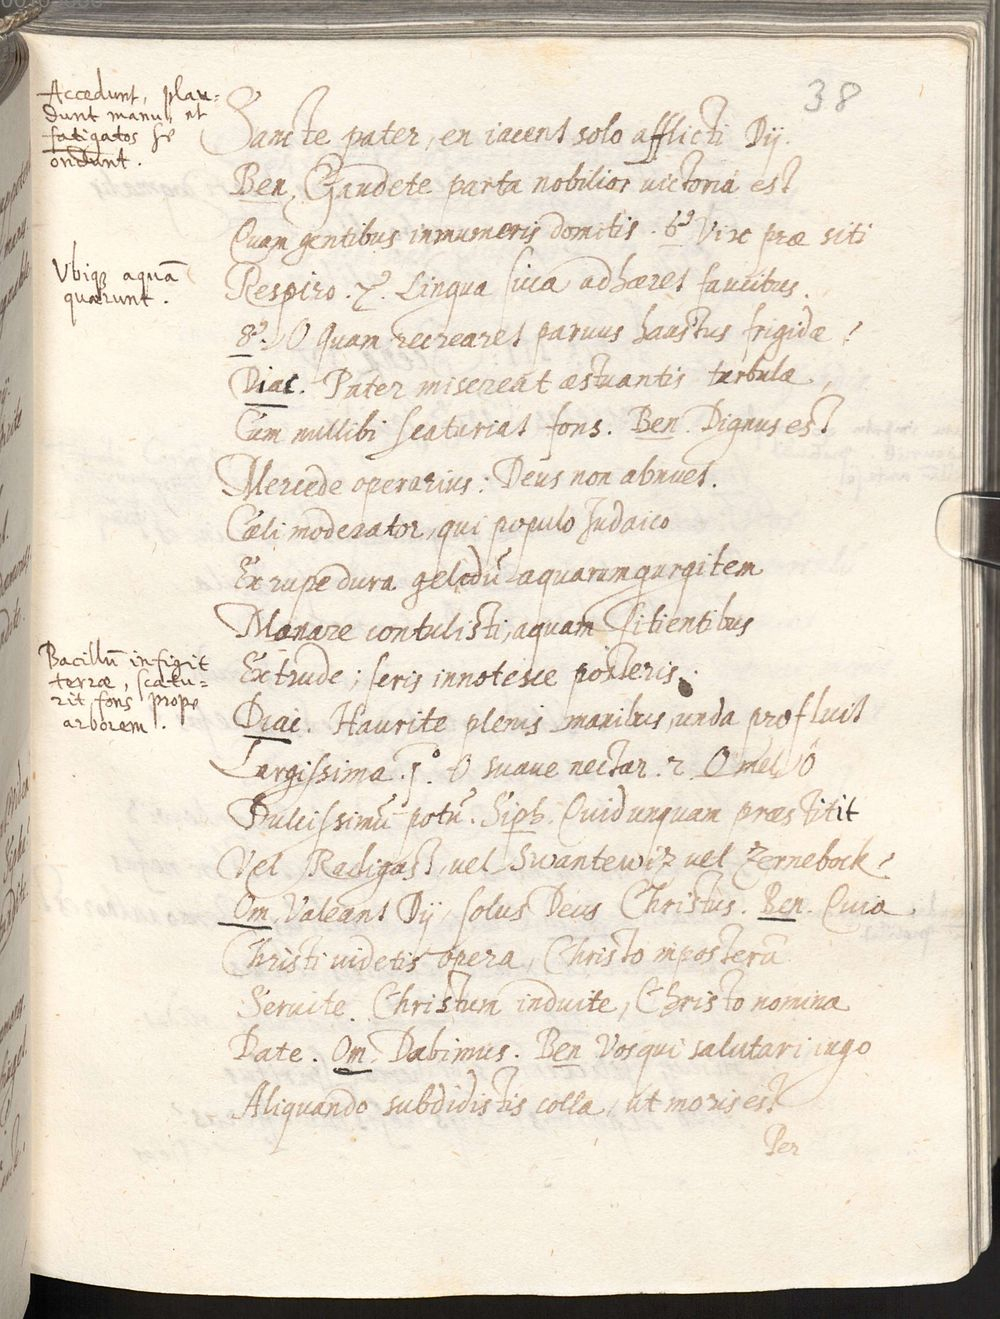 38
Accedunt, plau-
dunt manu, et
fatigatos se
ondunt.
Sancte pater, en iacent solo afflicti Dij.
Ben. Gaudete parta nobilior victoria est
Quam gentibus innumeris domitis. 6us Vix præ siti
Vbiq. aquā
quærunt.
Respiro. 7. Lingua sicca adhæret faucibus.
8us. O Quam recrearet paruus haustus frigidæ!
Diac. Pater misereat æstuantis turbulæ,
Cum nullibi scaturiat fons. Ben. Dignus est
Mercede operarius: Deus non abnuet.
Cæli moderator, qui populo Judaico
Ex rupe dura gelidū aquarum gurgitem
Manare contulisti, aquam sitientibus
Bacillū infigit
terræ, scatu-
rit fons prope
arborem.
Extrude; seris innotesce posteris.
Diac. Haurite plenis manibus, unda profluit
Largissima. 1o. O suaue nectar. 2. O mel, ô
Dulcissimū potū. Siph. Quid unquam præstitit
Vel Radigast, vel Swantewiz vel Zernebock?
Om. Valeant Dij, solus Deus Christus. Ben. Quia
Christi videtis opera, Christo inposterū
Seruite. Christum induite, Christo nomina
Date. Om. Dabimus. Ben Vos qui salutari iugo
Aliquando subdidistis colla, ut moris est
Per